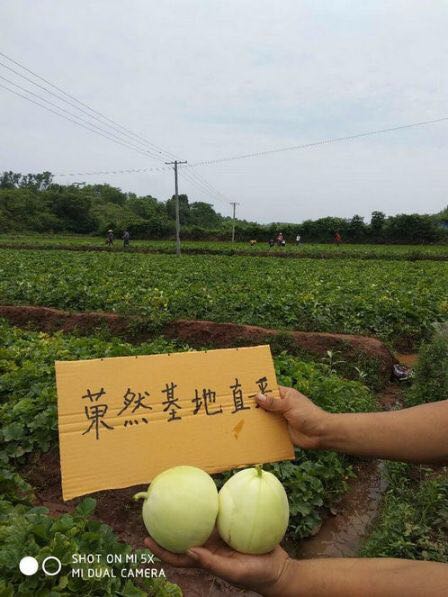 菓然基地直采
SHOT ON MI 5X
MI DUAL CAMERA